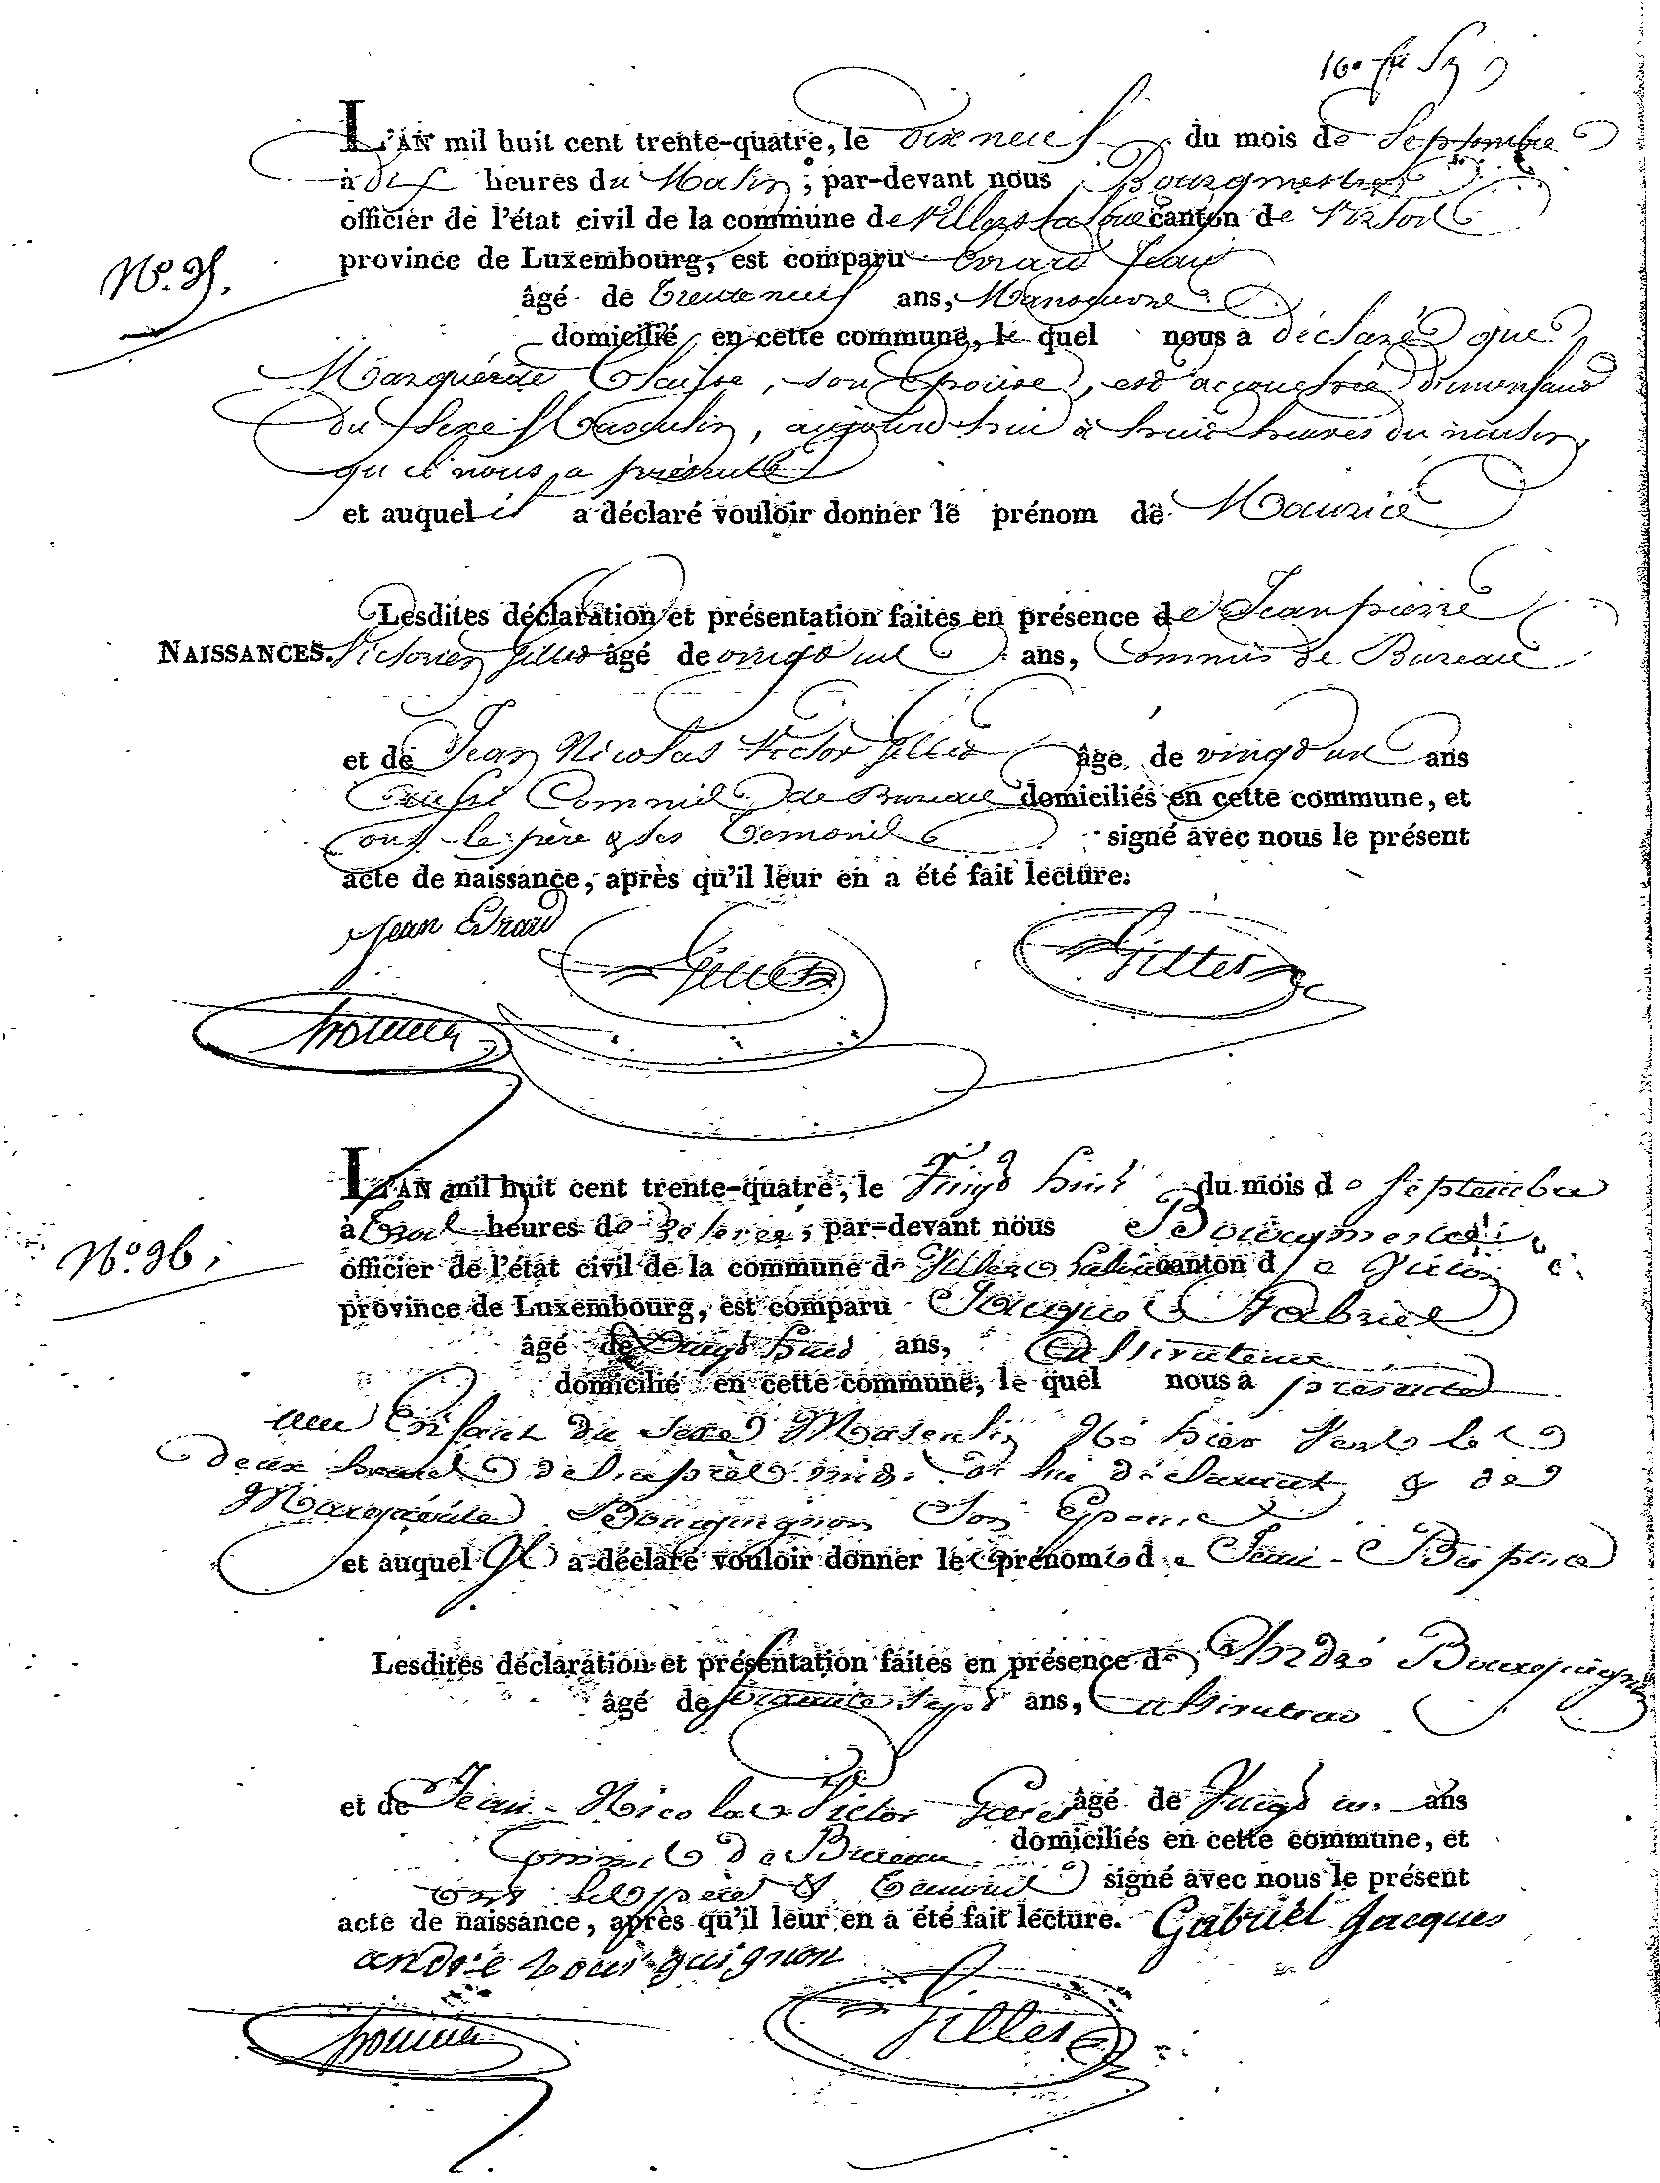 L'AN mil huit cent trente-quatre, le dix neuf du mois de Septembre
à dix heures du Matin, par-devant nous Bourgmestre
officier de l'état civil de la commune de Villers la loue canton de Virton
province de Luxembourg, est comparu Evrard Jean
N.º 35.
âgé de trente neuf ans, Manoeuvre
domicilié en cette commune, le quel nous a déclaré que
Marguérite Claisse, son épouse, est accouchée d'un enfant
du Sexe Masculin, aujourd'hui à huit heures du matin,
qu'il nous a présenté
et auquel il a déclaré vouloir donner le prénom de Maurice
Lesdites déclaration et présentation faites en présence de Jean pierre
NAISSANCES. Victorien Gilles âgé de vingt un ans, Commis de Bureau
et de Jean Nicolas Victor Gilles âgé de vingt un ans
aussi Commis de Bureau domiciliés en cette commune, et
ont le père & les temoins signé avec nous le présent
acte de naissance, après qu'il leur en a été fait lecture.
Jean Evrard
Gilles Gilles
L'AN mil huit cent trente-quatre, le Vingt huit du mois de Septembre
à trois heures de relevée, par-devant nous Bourgmestre
N.º 36.
officier de l'état civil de la commune de Villers la loue canton de Virton
province de Luxembourg, est comparu Jacques Gabriel
âgé de Vingt huit ans, Cultivateur
domicilié en cette commune, le quel nous a présenté
un Enfant du Sexe Masculin Né hier vers les
deux heures de l'après midi de lui déclarant & de
Marguérite Bourguignon Son Epouse
et auquel Il a déclaré vouloir donner les prénoms de Jean-Baptiste
Lesdites déclaration et présentation faites en présence de André Bourguignon
âgé de soixante sept ans, Cultivateur
et de Jean-Nicolas Victor Gilles âgé de Vingt un ans
Commis de Bureau domiciliés en cette commune, et
ont les père & temoins signé avec nous le présent
acte de naissance, après qu'il leur en a été fait lecture. Gabriel Jacques
andré bourguignon
Gilles